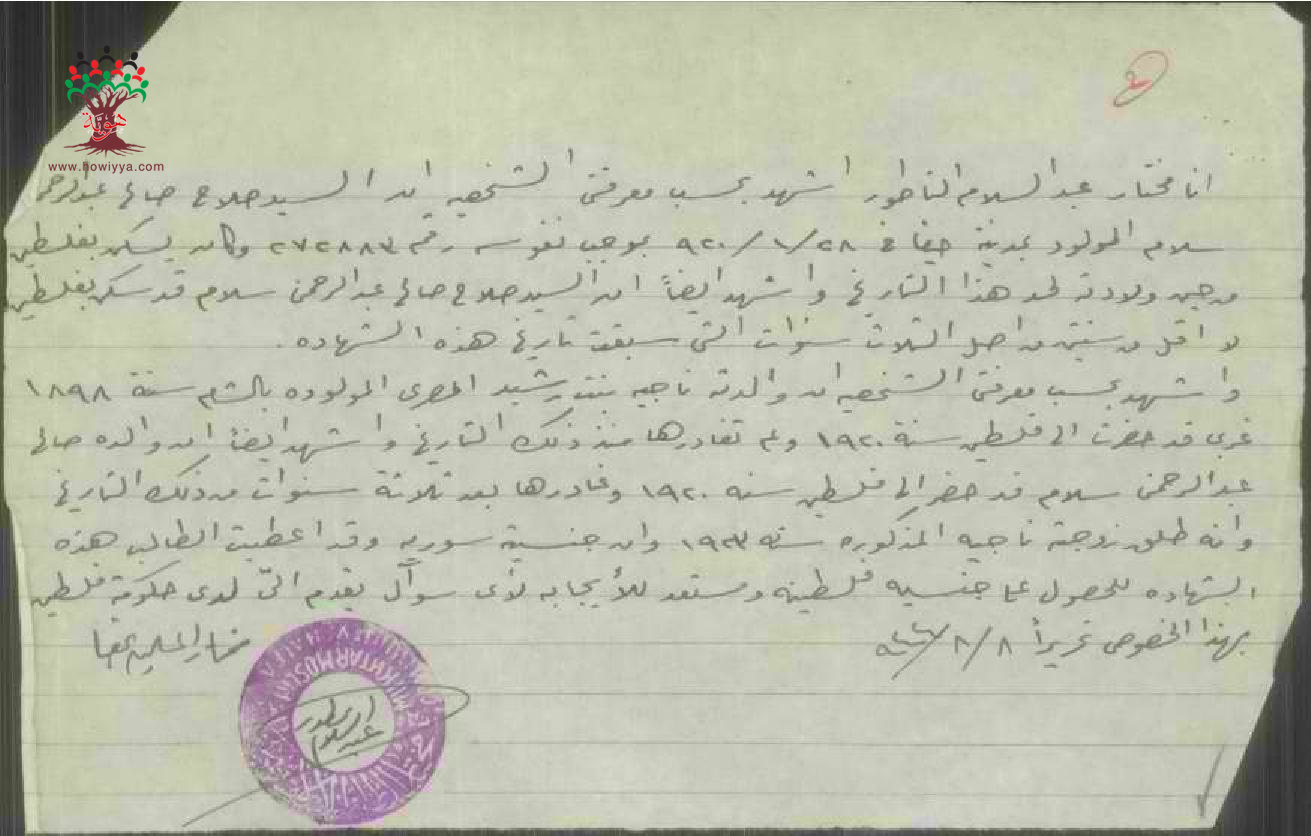 هوية
www.howiyya.com
انا مختار عبد السلام الناطور اشهد بحسب معرفتي الشخصيه ان السيد صلاح صالح عبد الرحمن
سلام المولود بمدينة حيفا في ٢٨/١/٩٢٠ بموجب نفوسه رقم ٢٧٢٨٨٣ وكان يسكن بفلسطين
من حين ولادته لحد هذا التاريخ واشهد ايضاً ان السيد صلاح صالح عبد الرحمن سلام قد سكن بفلسطين
لا اقل من سنتين من اصل الثلاث سنوات التي سبقت تاريخ هذه الشهاده.
واشهد بحسب معرفتي الشخصيه ان والدته ناجيه بنت رشيد المصري المولوده بالشام سنة ١٨٩٨
غربي قد حضرت الى فلسطين سنة ١٩٢٠ ولم تغادرها منذ ذلك التاريخ واشهد ايضاً ان والده صالح
عبد الرحمن سلام قد حضر الى فلسطين سنه ١٩٢٠ وغادرها بعد ثلاثة سنوات من ذلك التاريخ
وانه طلق زوجته ناجيه المذكوره سنه ١٩٢٣ وان جنسيته سوريه وقد اعطيت الطالب هذه
الشهاده للحصول على جنسيه فلسطينه ومستعد للأيجابه لأى سوآل يقدم اليّ لدى حكومة فلسطين
بهذا الخصوص تحريراً ٨/٨/
مختار المسلمين بحيفا
MUKHTAR MUSLIM HAIFA
عبد السلام الناطور